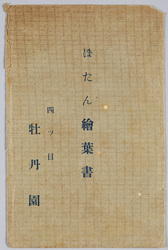 ほたん繪葉書
四ッ目
牡丹園